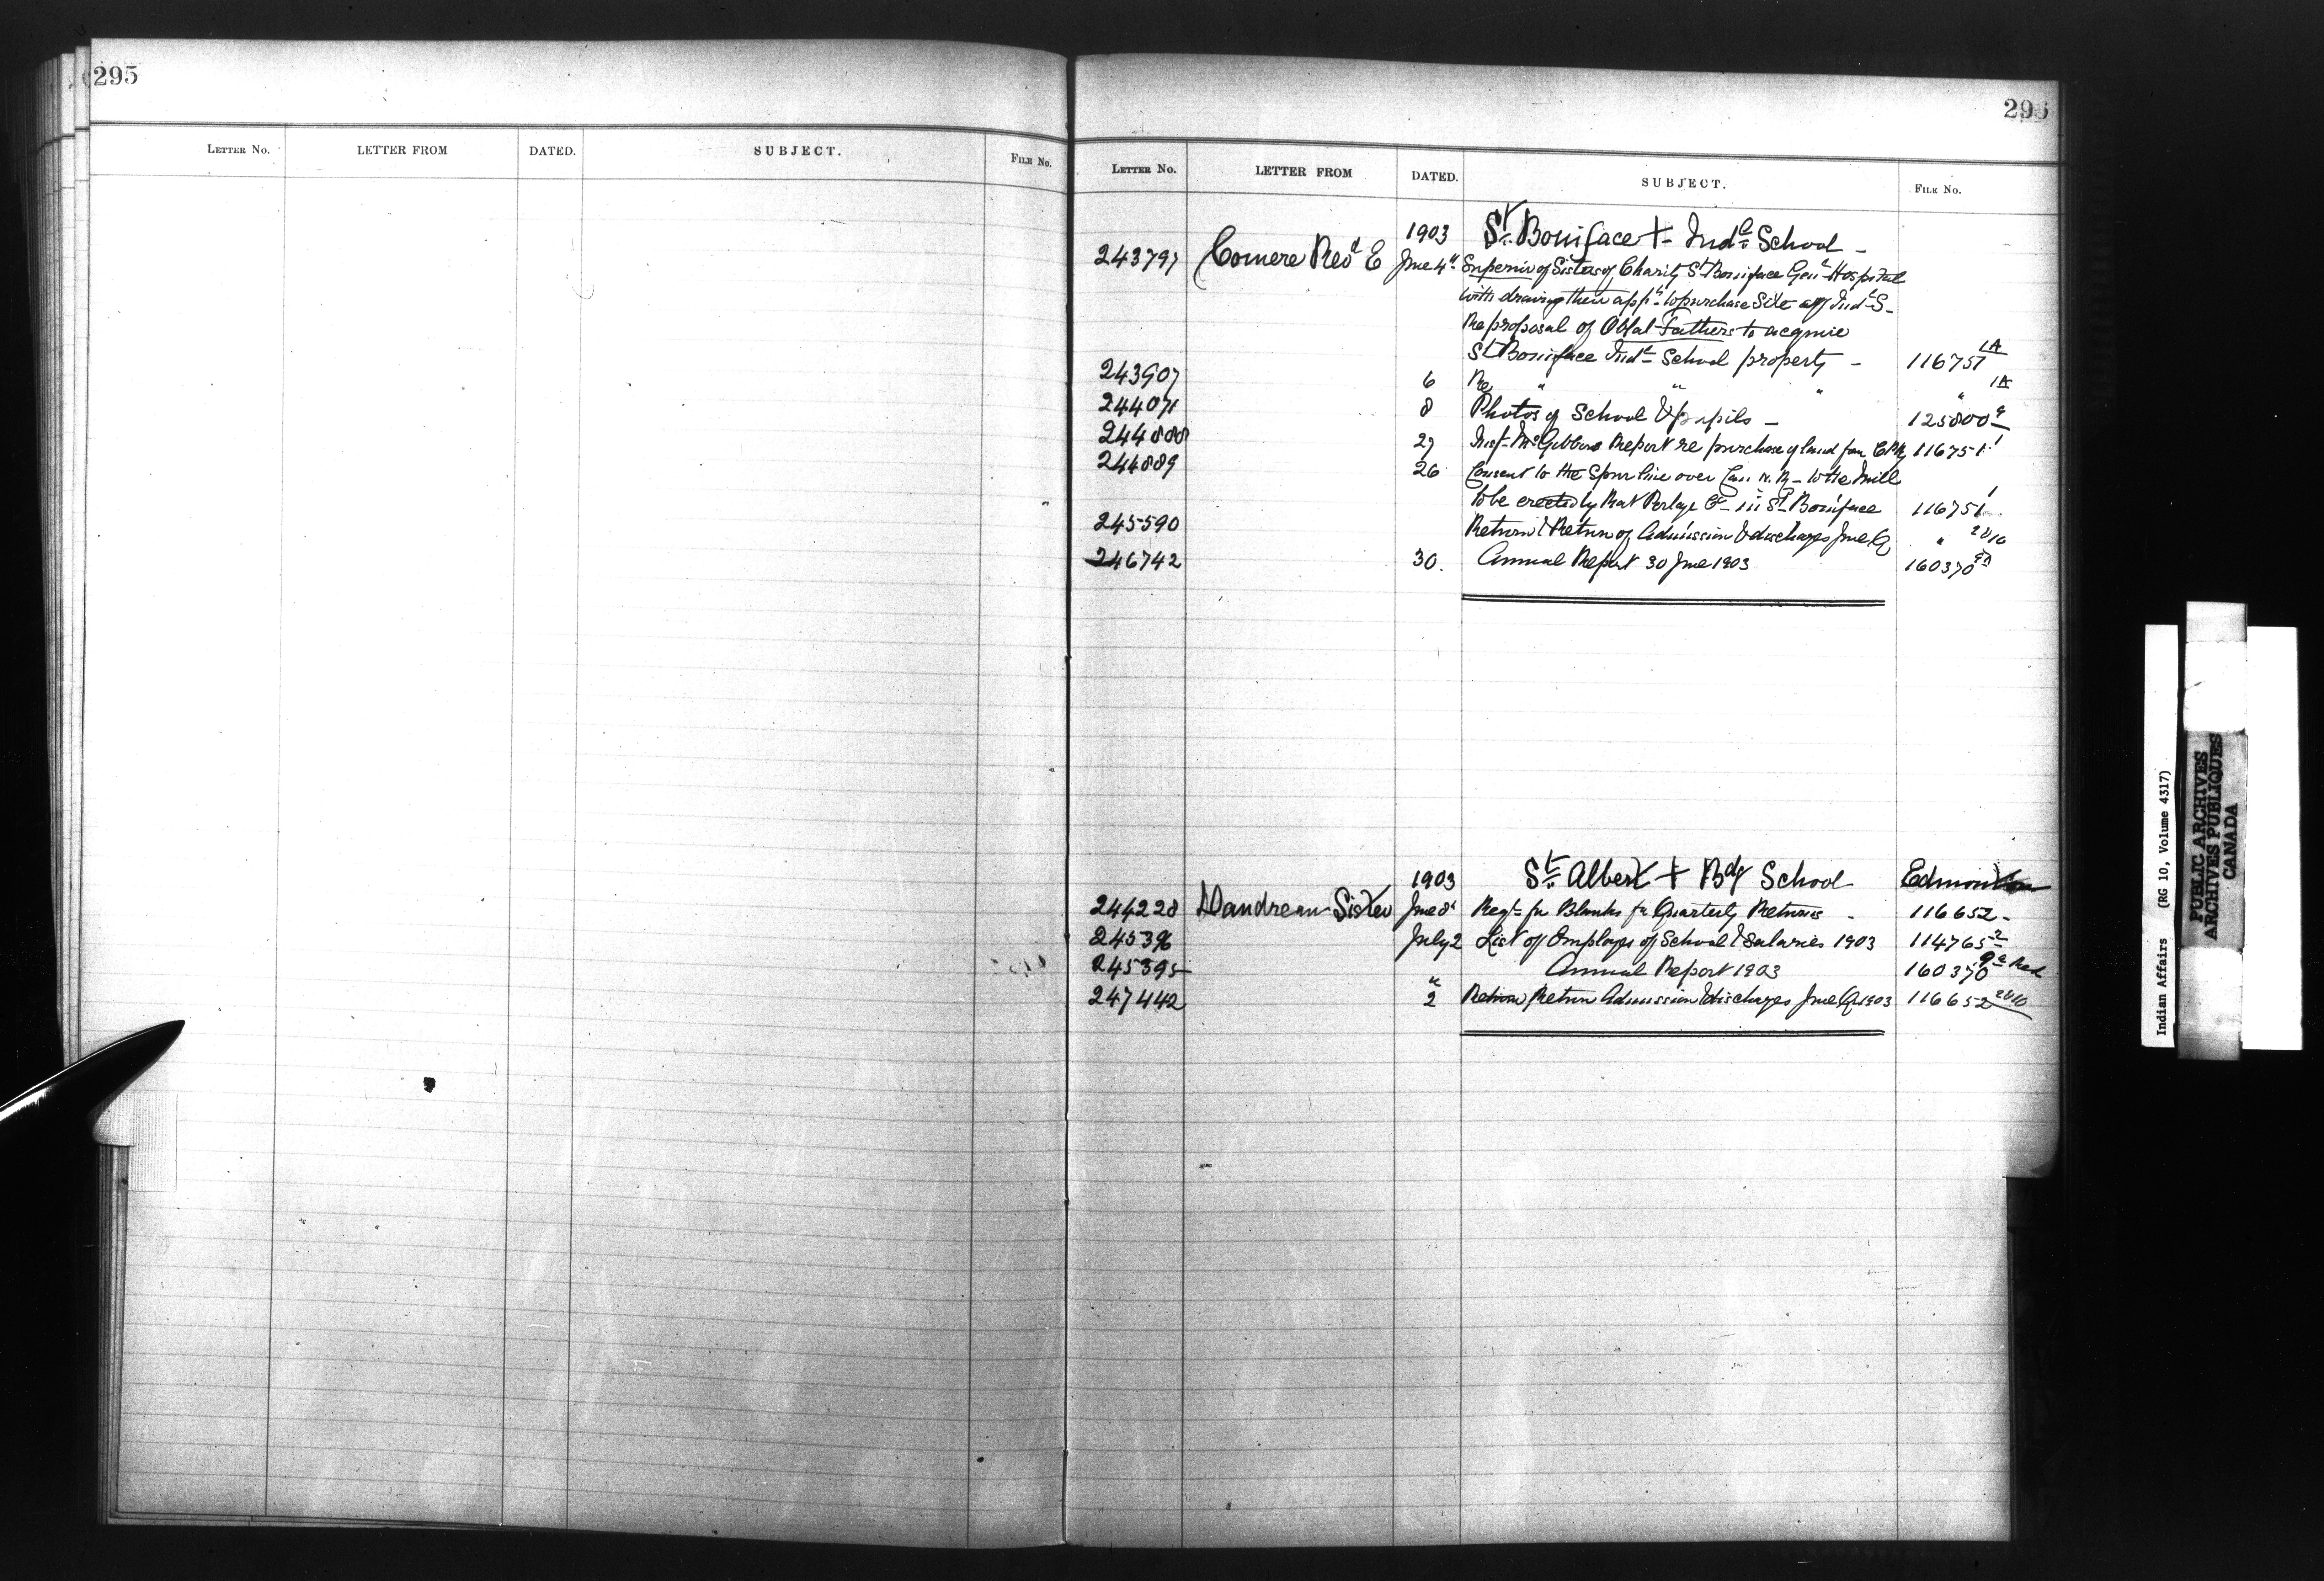 295
LETTER No. LETTER FROM DATED. SUBJECT. FILE No.
296
LETTER No. LETTER FROM DATED. SUBJECT. FILE No.
1903 St. Boniface + Indl School -
243797 Comere Revd E June 4th Superior of Sisters of Charity St Boniface Genl Hospital
withdrawing their appn to purchase Site of Indl S-
Re proposal of Oblat Fathers to acquire
St Boniface Indl School property - 116751 1A
243907 6 Re " " " " 1A
244071 8 Photos of School & pupils - 125800
244888 27 Insp. McGibbons Report re purchase of land for C.P.R. 116751 1
244889 26 Consent to the Spur line over Can N. R - to the Mill
to be erected by Rat Portage Co - in St Boniface 116751 1
245590 Return & Return of Admission & discharges June Q " 28/10
246742 30. Annual Report 30 June 1903 160370
1903 St. Albert + Bdg School Edmonton
244228 Dandreau Sister June 8 Reqt for Blanks for Quarterly Returns - 116652-
245396 July 2 List of Employes of School & Salaries 1903 114765 2
245395 Annual Report 1903 160370
247442 " 2 Return Return Admission & discharges June Q 1903 116652 28/10
Indian Affairs (RG 10, Volume 4317)
PUBLIC ARCHIVES
ARCHIVES PUBLIQUES
CANADA